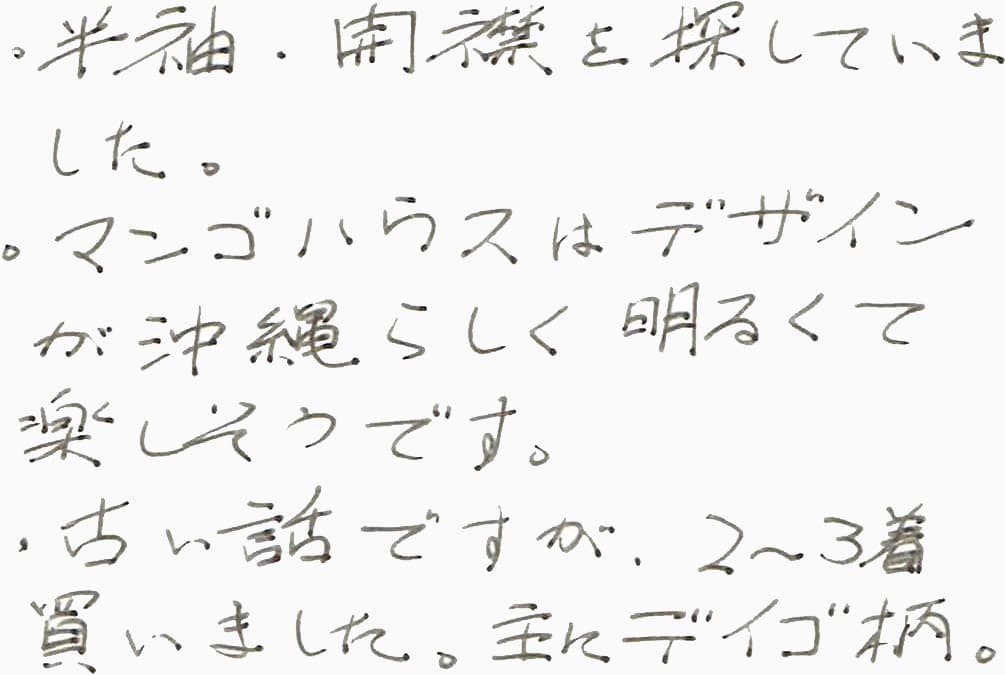 ・半袖・開襟を探していま
した。
。マンゴハウスはデザイン
が沖縄らしく明るくて
楽しそうです。
・古い話ですが、2〜3着
買いました。主にデイゴ柄。